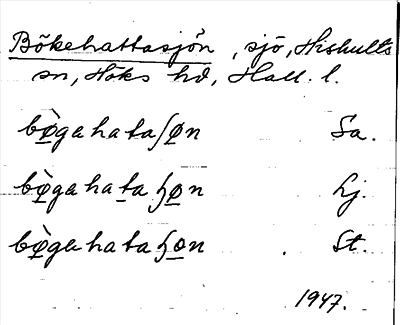 Bökehattasjön, sjö, Hishults
sn, Höks hd, Hall. l.
bø̀gahataʃøn Sa.
bø̀gahataɧøn Lj.
bø̀gahataɧøn St.
1947.